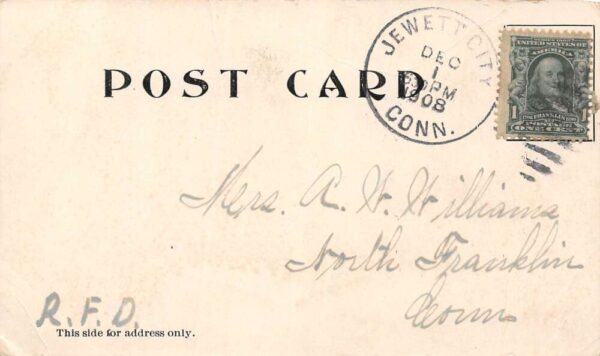 JEWETT CITY
DEC
1
1908
CONN.
POST CARD
SERIES 1902
UNITED STATES OF AMERICA
1 1
FRANKLIN
POSTAGE
ONE CENT
Mrs. A. W. Williams
North Franklin
Conn
R.F.D.
This side for address only.